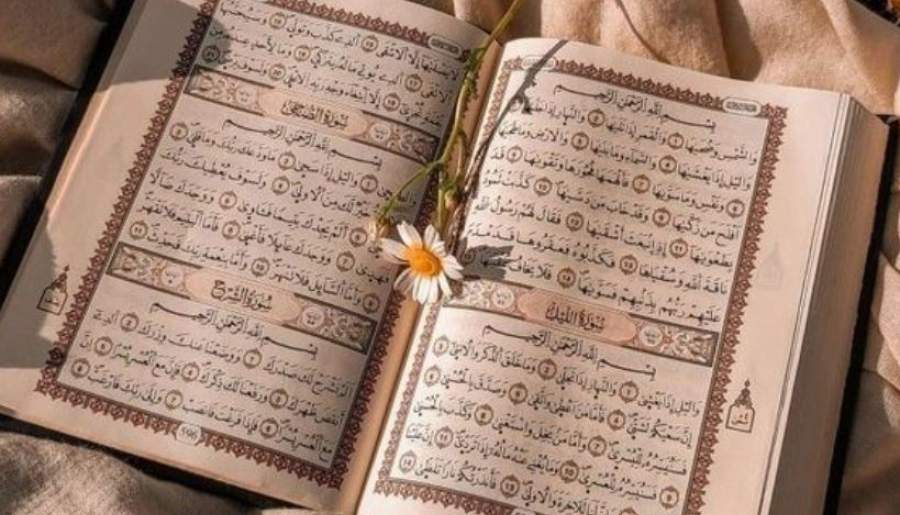 بِسْمِ ٱللَّهِ ٱلرَّحْمَٰنِ ٱلرَّحِيمِ
وَٱلشَّمْسِ وَضُحَىٰهَا وَٱلْقَمَرِ إِذَا تَلَىٰهَا وَٱلنَّهَارِ إِذَا جَلَّىٰهَا
وَٱلَّيْلِ إِذَا يَغْشَىٰهَا وَٱلسَّمَآءِ وَمَا بَنَىٰهَا وَٱلْأَرْضِ وَمَا طَحَىٰهَا
وَنَفْسٍ وَمَا سَوَّىٰهَا فَأَلْهَمَهَا فُجُورَهَا وَتَقْوَىٰهَا قَدْ
أَفْلَحَ مَن زَكَّىٰهَا وَقَدْ خَابَ مَن دَسَّىٰهَا كَذَّبَتْ ثَمُودُ
بِطَغْوَىٰهَآ إِذِ ٱنۢبَعَثَ أَشْقَىٰهَا فَقَالَ لَهُمْ رَسُولُ ٱللَّهِ
نَاقَةَ ٱللَّهِ وَسُقْيَٰهَا فَكَذَّبُوهُ فَعَقَرُوهَا فَدَمْدَمَ
عَلَيْهِمْ رَبُّهُم بِذَنۢبِهِمْ فَسَوَّىٰهَا يَخَافُ
سُورَةُ ٱللَّيْلِ
بِسْمِ ٱللَّهِ ٱلرَّحْمَٰنِ ٱلرَّحِيمِ
وَٱلَّيْلِ إِذَا يَغْشَىٰ وَٱلنَّهَارِ إِذَا تَجَلَّىٰ وَمَا خَلَقَ ٱلذَّكَرَ وَٱلْأُنثَىٰٓ
إِنَّ سَعْيَكُمْ لَشَتَّىٰ فَأَمَّا مَنْ أَعْطَىٰ وَٱتَّقَىٰ وَصَدَّقَ بِٱلْحُسْنَىٰ
فَسَنُيَسِّرُهُۥ لِلْيُسْرَىٰ وَأَمَّا مَنۢ بَخِلَ وَٱسْتَغْنَىٰ وَكَذَّبَ بِٱلْحُسْنَىٰ
فَسَنُيَسِّرُهُۥ لِلْعُسْرَىٰ وَمَا يُغْنِى عَنْهُ مَالُهُۥٓ إِذَا تَرَدَّىٰٓ إِنَّ عَلَيْنَا
لَنَا لَلْءَاخِرَةَ وَٱلْأُولَىٰ فَأَنذَرْتُكُمْ نَارًا تَلَظَّىٰ
لَا يَصْلَىٰهَآ إِلَّا ٱلْأَشْقَى ٱلَّذِى كَذَّبَ وَتَوَلَّىٰ وَسَيُجَنَّبُهَا
ٱلْأَتْقَى ٱلَّذِى يُؤْتِى مَالَهُۥ يَتَزَكَّىٰ وَمَا لِأَحَدٍ عِندَهُۥ مِن
نِّعْمَةٍ تُجْزَىٰٓ إِلَّا ٱبْتِغَآءَ وَجْهِ رَبِّهِ ٱلْأَعْلَىٰ وَلَسَوْفَ يَرْضَىٰ
سُورَةُ ٱلضُّحَىٰ
بِسْمِ ٱللَّهِ ٱلرَّحْمَٰنِ ٱلرَّحِيمِ
وَٱلضُّحَىٰ وَٱلَّيْلِ إِذَا سَجَىٰ مَا وَدَّعَكَ رَبُّكَ وَمَا قَلَىٰ
خَيْرٌ لَّكَ مِنَ ٱلْأُولَىٰ وَلَسَوْفَ يُعْطِيكَ رَبُّكَ
أَلَمْ يَجِدْكَ يَتِيمًا فَـَٔاوَىٰ وَوَجَدَكَ ضَآلًّا
فَهَدَىٰ وَوَجَدَكَ عَآئِلًا فَأَغْنَىٰ فَأَمَّا ٱلْيَتِيمَ فَلَا تَقْهَرْ
وَأَمَّا ٱلسَّآئِلَ فَلَا تَنْهَرْ وَأَمَّا بِنِعْمَةِ رَبِّكَ فَحَدِّثْ
سُورَةُ ٱلشَّرْحِ
بِسْمِ ٱللَّهِ ٱلرَّحْمَٰنِ ٱلرَّحِيمِ
أَلَمْ نَشْرَحْ لَكَ صَدْرَكَ وَوَضَعْنَا عَنكَ وِزْرَكَ ٱلَّذِىٓ
أَنقَضَ ظَهْرَكَ وَرَفَعْنَا لَكَ ذِكْرَكَ فَإِنَّ مَعَ ٱلْعُسْرِ يُسْرًا إِنَّ
مَعَ ٱلْعُسْرِ يُسْرًا فَإِذَا فَرَغْتَ فَٱنصَبْ وَإِلَىٰ رَبِّكَ فَٱرْغَب